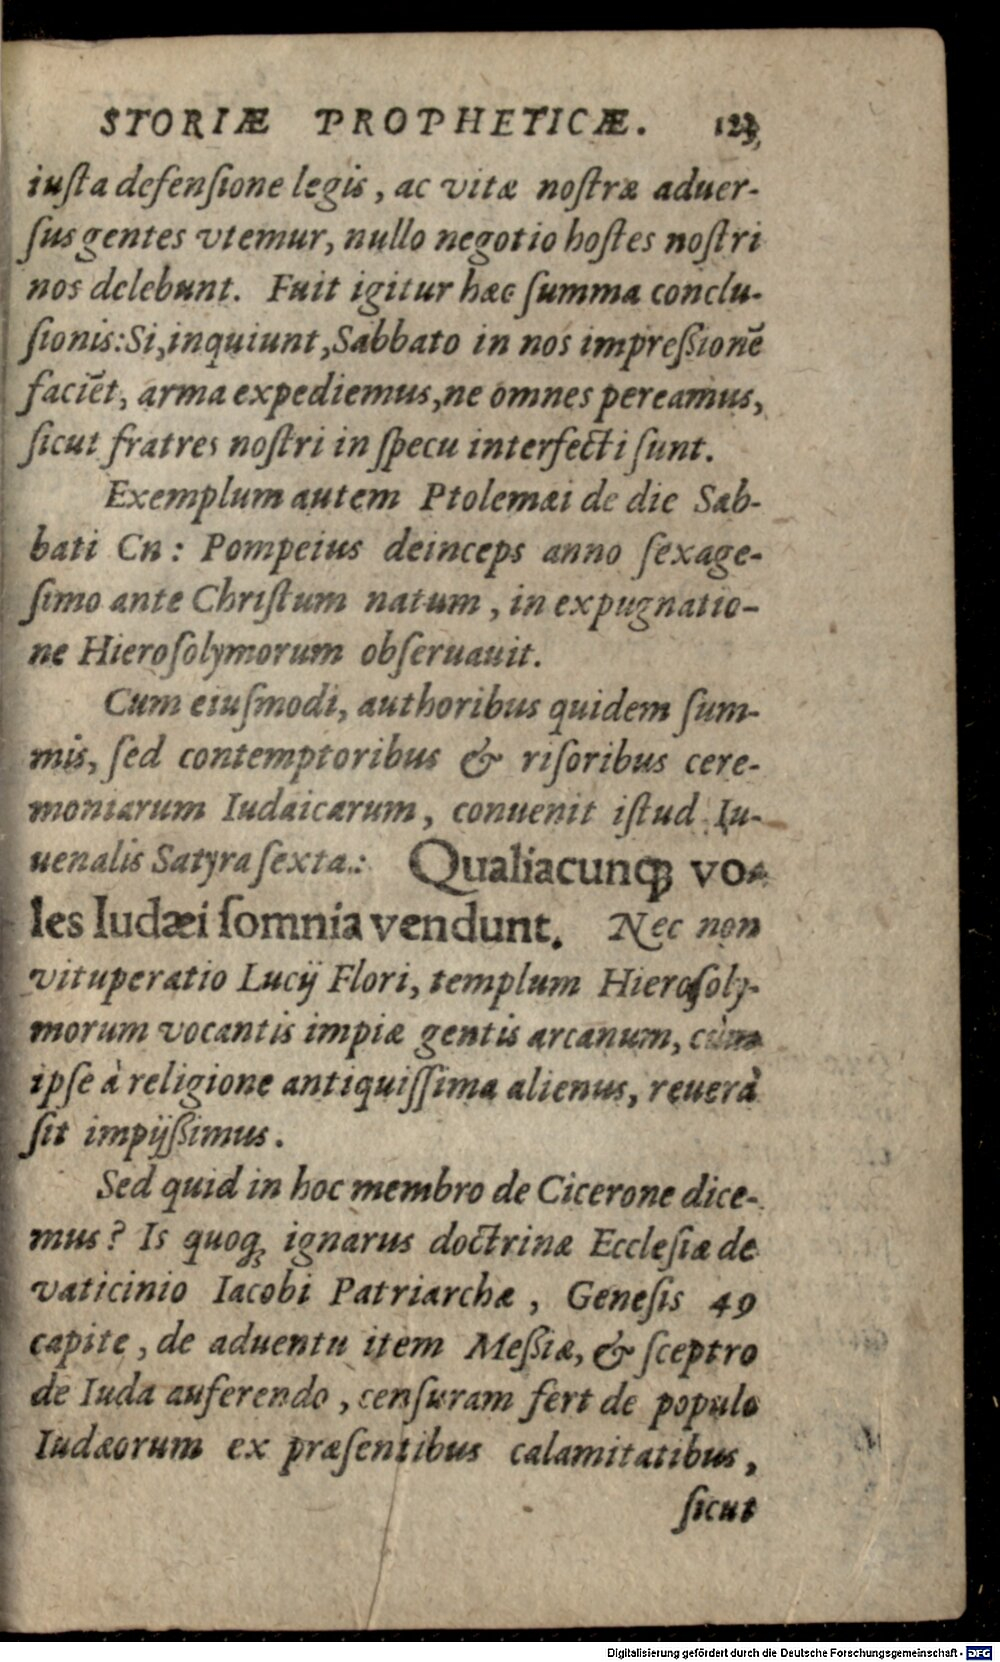 STORIÆ PROPHETICÆ. 123
iuſta defenſione legis, ac vitæ noſtræ aduer-
ſus gentes vtemur, nullo negotio hoſtes noſtri
nos delebunt. Fuit igitur hæc ſumma conclu-
ſionis: Si, inquiunt, Sabbato in nos impreßionẽ
faciẽt, arma expediemus, ne omnes pereamus,
ſicut fratres noſtri in ſpecu interfecti ſunt.
Exemplum autem Ptolemæi de die Sab-
bati Cn: Pompeius deinceps anno ſexage-
ſimo ante Chriſtum natum, in expugnatio-
ne Hieroſolymorum obſeruauit.
Cum eiuſmodi, authoribus quidem ſum-
mis, ſed contemptoribus & riſoribus cere-
moniarum Iudaicarum, conuenit iſtud Iu-
uenalis Satyra ſexta.: Qualiacunqꝫ vo-
les Iudæi ſomnia vendunt. Nec non
vituperatio Lucij Flori, templum Hieroſoly-
morum vocantis impiæ gentis arcanum, cùm
ipſe à religione antiquiſſima alienus, reuerà
ſit impijßimus.
Sed quid in hoc membro de Cicerone dice-
mus? Is quoqꝫ ignarus doctrinæ Eccleſiæ de
vaticinio Iacobi Patriarchæ, Geneſis 49
capite, de aduentu item Meßiæ, & ſceptro
de Iuda auferendo, cenſuram fert de populo
Iudæorum ex præſentibus calamitatibus,
ſicut
Digitalisierung gefördert durch die Deutsche Forschungsgemeinschaft - DFG